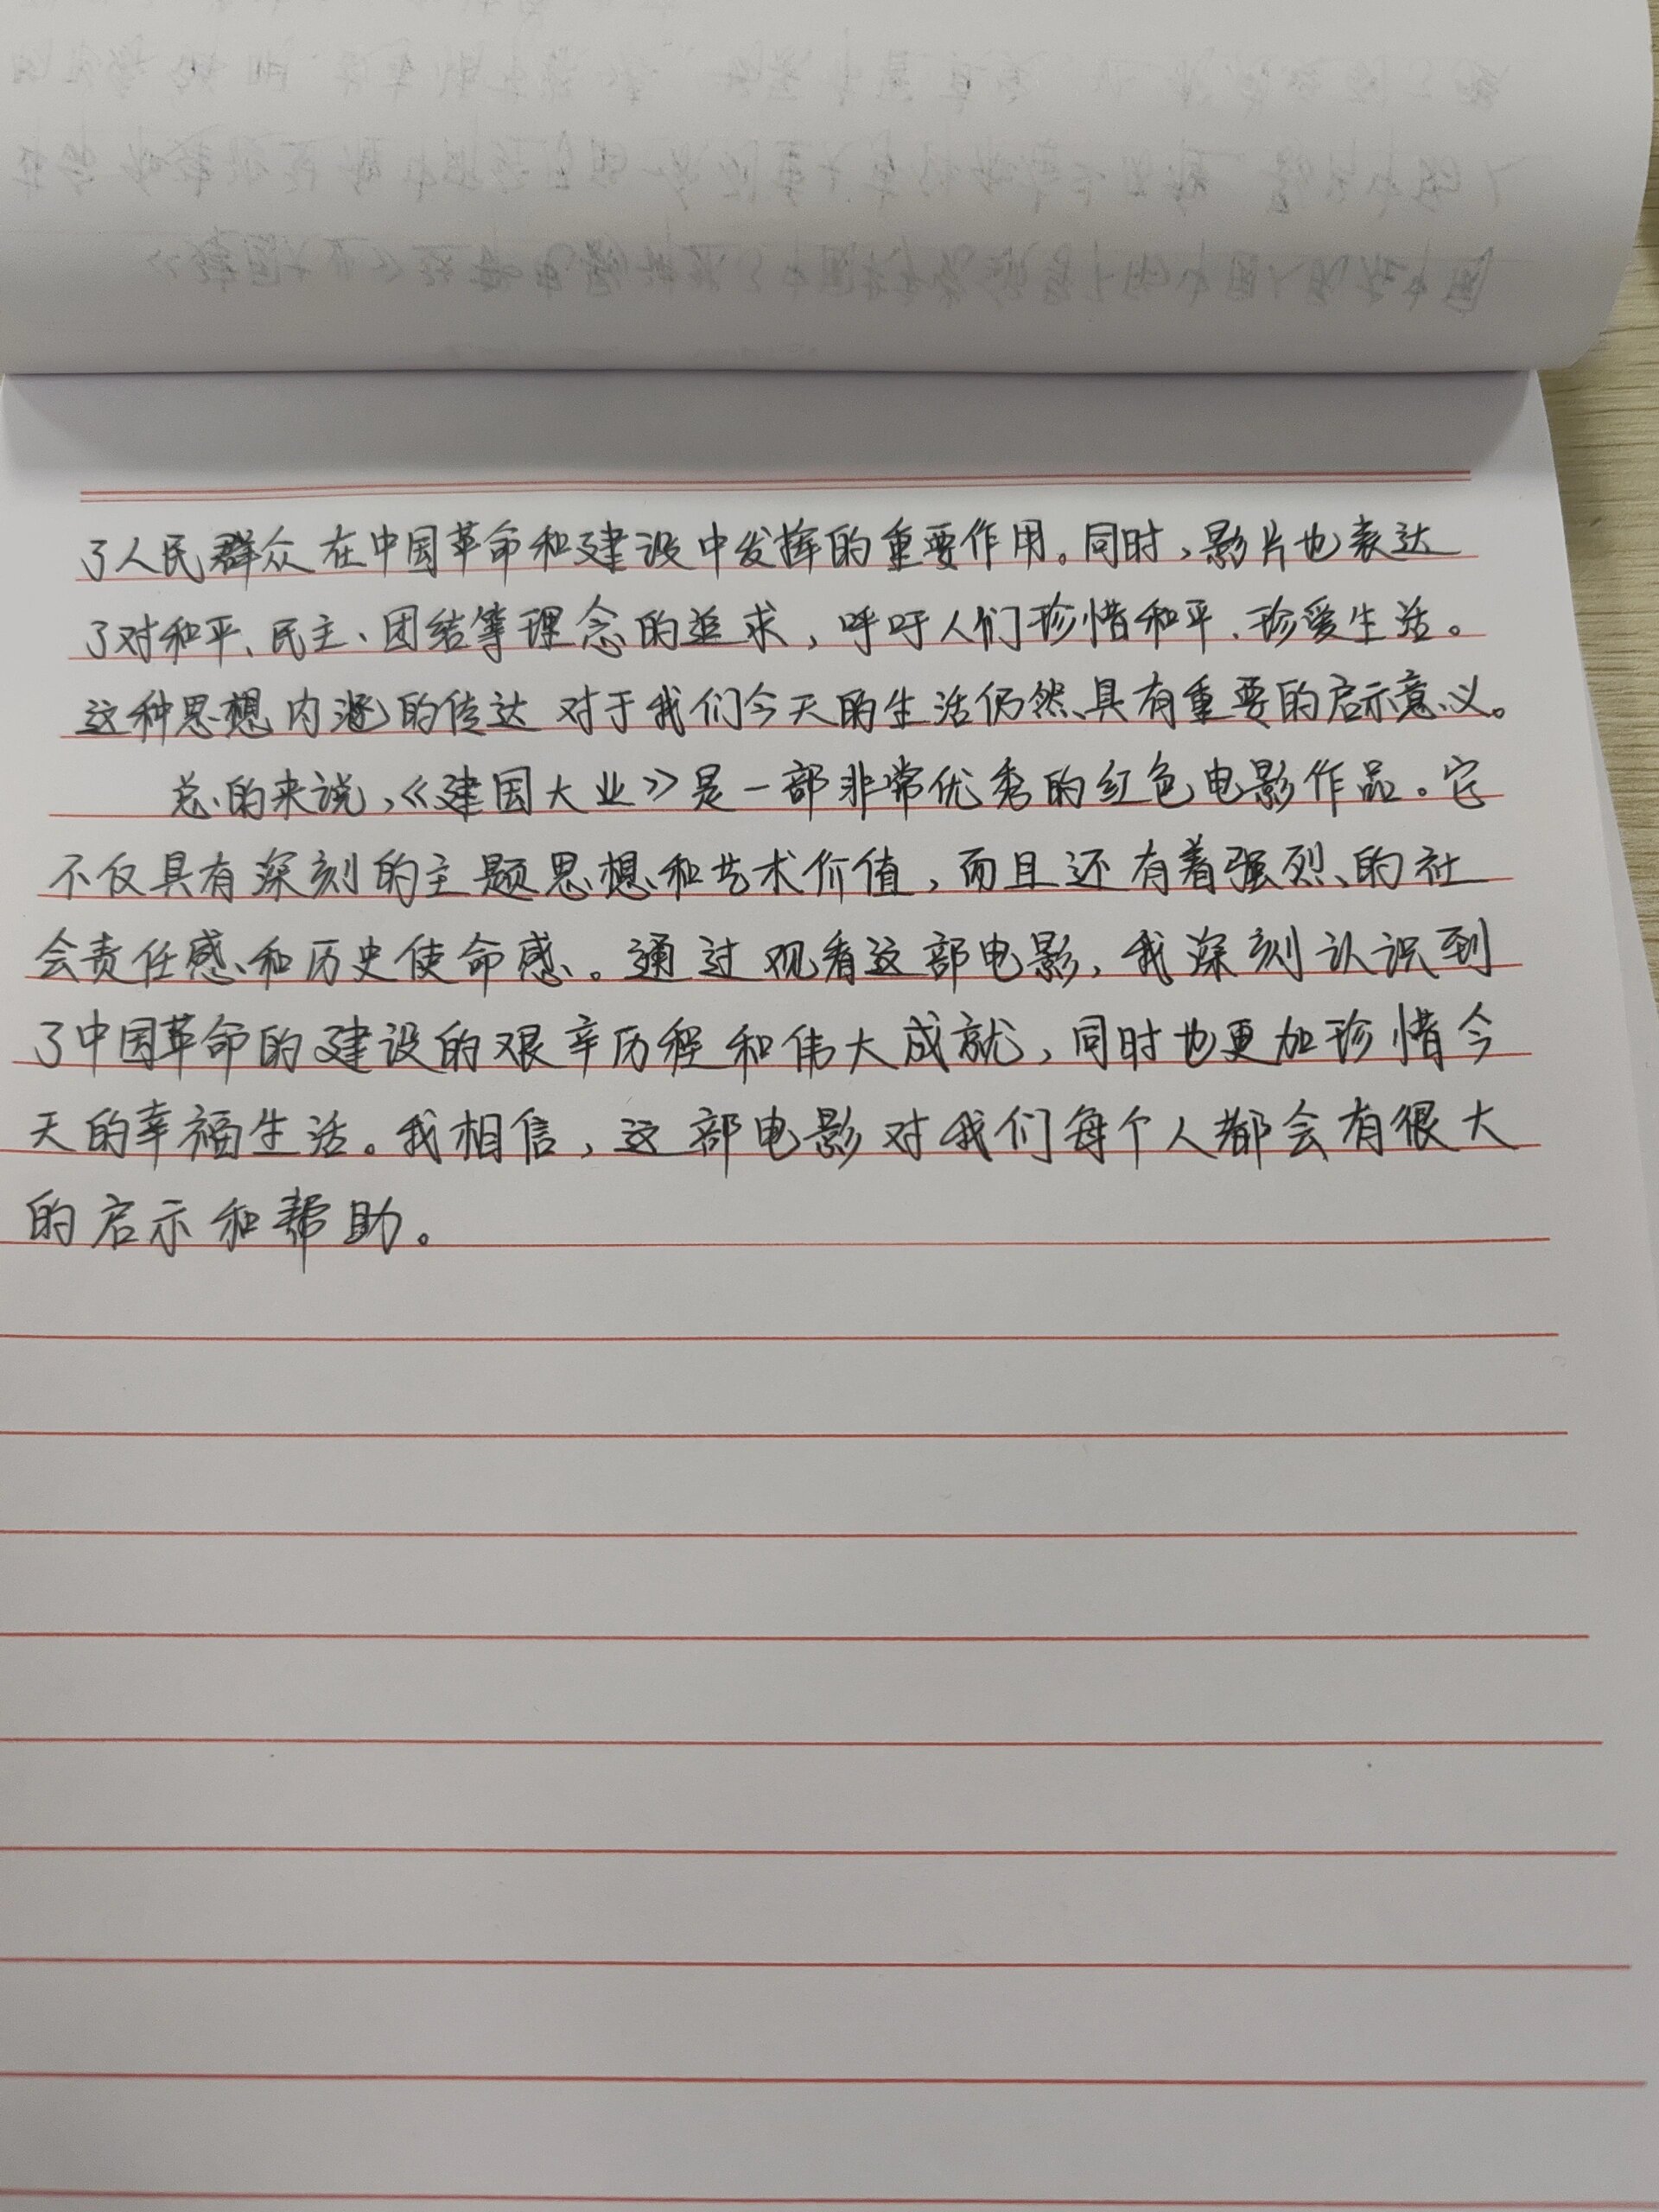 了人民群众在中国革命和建设中发挥的重要作用。同时，影片也表达
了对和平、民主、团结等理念的追求，呼吁人们珍惜和平、珍爱生活。
这种思想内涵的传达对于我们今天的生活仍然具有重要的启示意义。
总的来说，《建国大业》是一部非常优秀的红色电影作品。它
不仅具有深刻的主题思想和艺术价值，而且还有着强烈的社
会责任感和历史使命感。通过观看这部电影，我深刻认识到
了中国革命的建设的艰辛历程和伟大成就，同时也更加珍惜今
天的幸福生活。我相信，这部电影对我们每个人都会有很大
的启示和帮助。